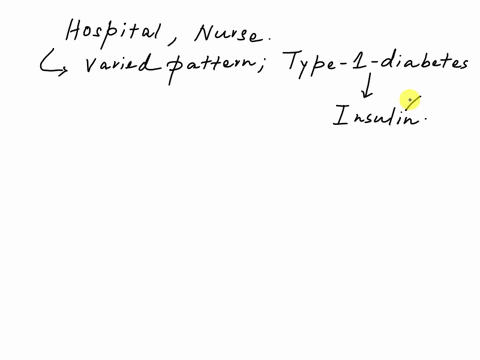 Hospital, Nurse.
↳ Varied pattern; Type-1-diabetes
↓
Insulin.